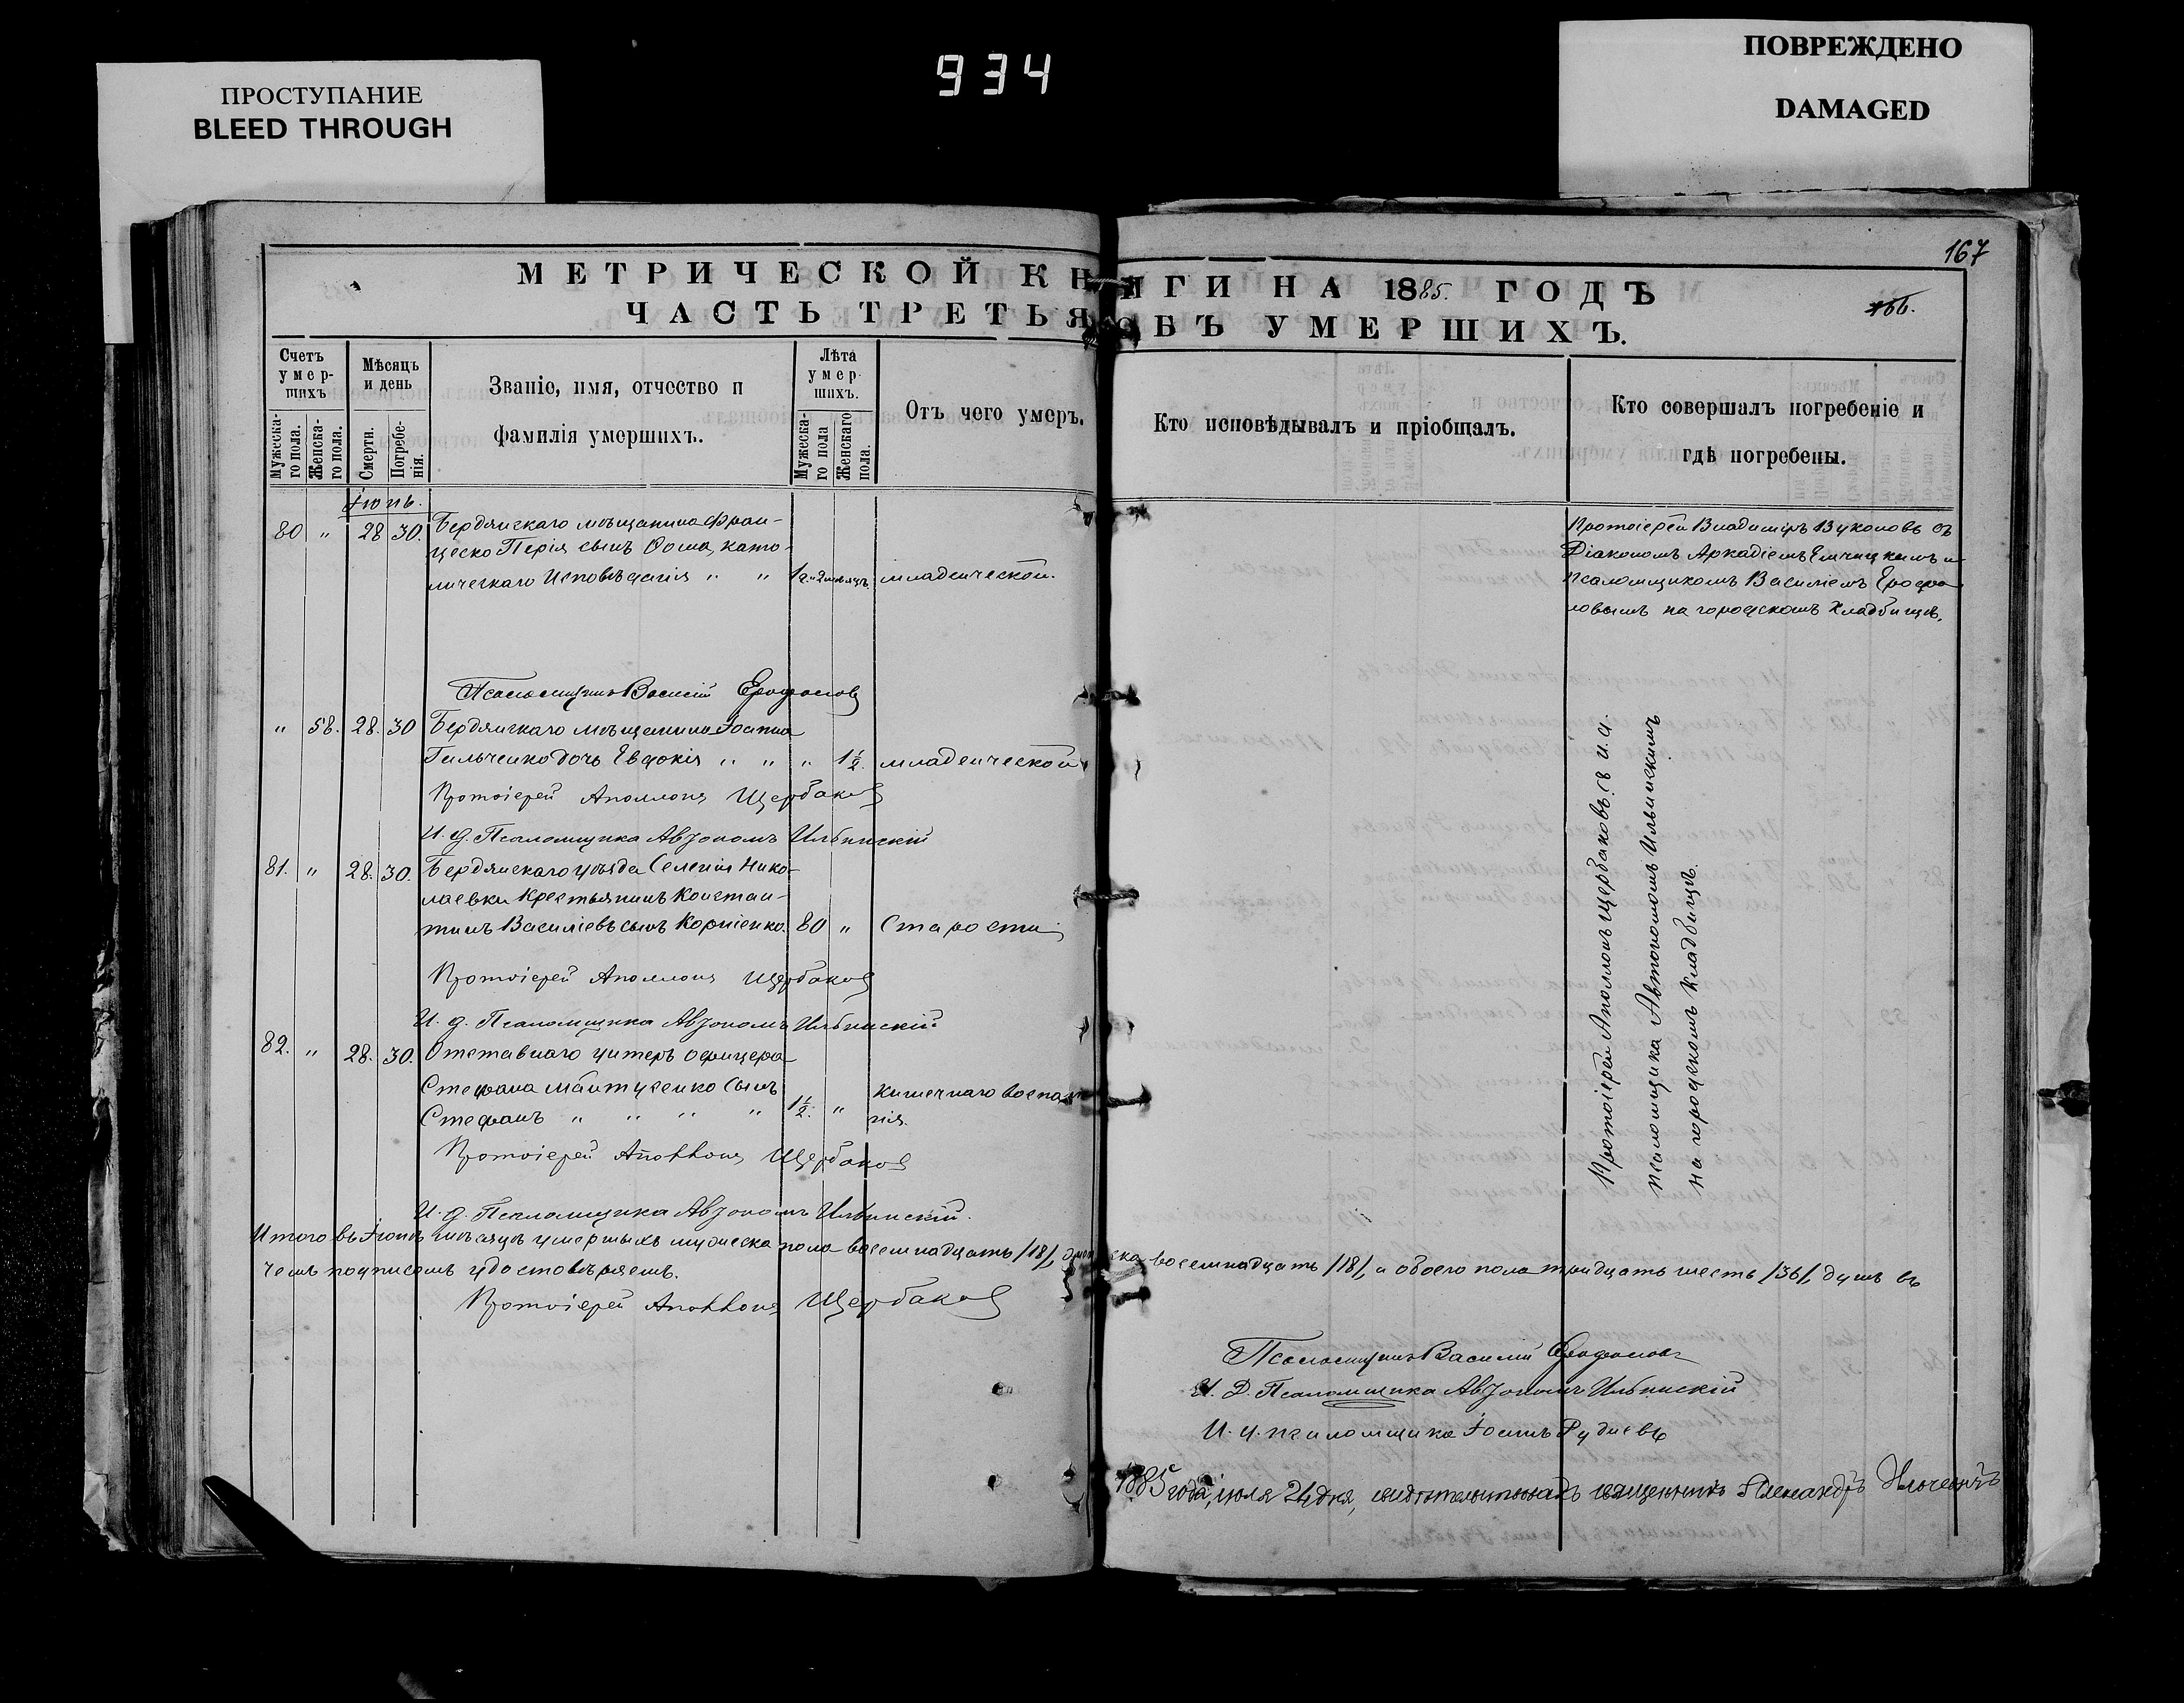 ПРОСТУПАНИЕ
BLEED THROUGH
934
ПОВРЕЖДЕНО
DAMAGED
167
МЕТРИЧЕСКОЙ КНИГИ НА 1885. ГОДЪ
166.
ЧАСТЬ ТРЕТЬЯ ОБЪ УМЕРШИХЪ.
Счетъ умер-шихъ
Мужеска-го пола.
Женска-го пола.
Мѣсяцъ и день
Смерти.
Погребе-нія.
Званіе, имя, отчество и
фамилія умершихъ.
Лѣта умер-шихъ.
Мужеска-го пола
Женскаго пола.
Отъ чего умеръ.
Кто исповѣдывалъ и пріобщалъ.
Кто совершалъ погребеніе и
гдѣ погребены.
Іюнь.
80 " 28 30. Бердянскаго мѣщанина Фран-
ческо Перія сынъ Ѳома, като-
лическаго Исповѣданія " " младенческой.
Протоіерей Владиміръ Вуколовъ съ
Діакономъ Аркадіемъ
псаломщикомъ Василіемъ Ерофа-
ловымъ на городскомъ Кладбищѣ.
Псаломщикъ Василій
" 58. 28. 30 Бердянскаго мѣщанина Іоанна
Гильченко дочь Евдокія " " " 1½. младенческой
Протоіерей Аполлонъ Щербаковъ
И. д. Псаломщика Автономъ Ильинскій
81. " 28. 30. Бердянскаго уѣзда Селенія Нико-
лаевки Крестьянинъ Констан-
тинъ Василіевъ сынъ Корніенко. 80 " Старости
Протоіерей Аполлонъ Щербаковъ
И. д. Псаломщика Автономъ Ильинскій
82. " 28. 30. Отставнаго унтеръ офицера
Стефана сынъ
Стефанъ " " " " 1½. " Кишечнаго воспале
нія.
Протоіерей Аполлонъ Щербаковъ
И. д. Псаломщика Автономъ Ильинскій.
Протоіерей Аполлонъ Щербаковъ съ и. д.
псаломщика Автономомъ Ильинскимъ
на городскомъ Кладбищѣ.
Итого въ Іюнѣ мѣсяцѣ умершихъ мужеска пола восемнадцать /18/, женска восемнадцать /18/, а обоего пола тридцать шесть /36/, душъ въ
чемъ подписомъ удостовѣряемъ.
Протоіерей Аполлонъ Щербаковъ
Псаломщикъ Василій
И. Д. Псаломщика Автономъ Ильинскій
И. д. псаломщика Іоаннъ
1885 года, іюля 24 дня, свидѣтельствовалъ священникъ Александръ